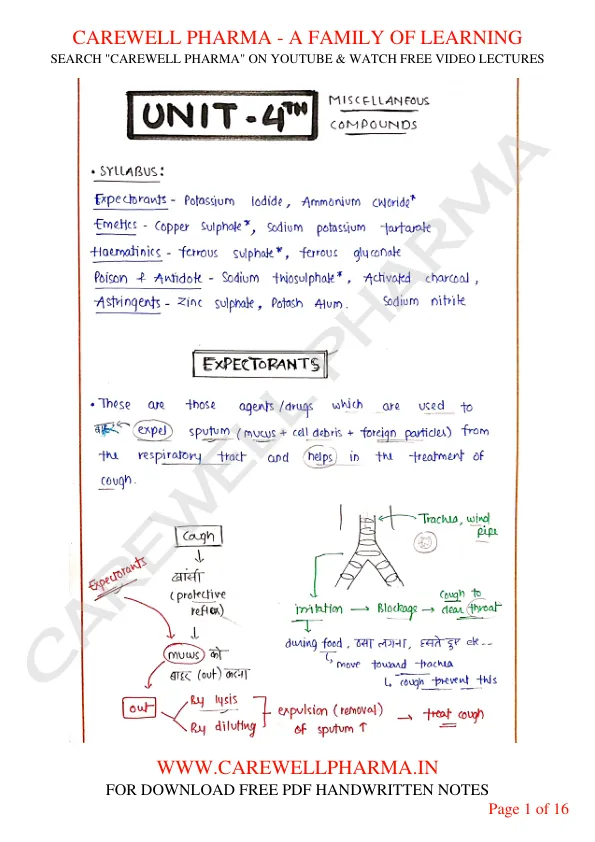 CAREWELL PHARMA - A FAMILY OF LEARNING
SEARCH "CAREWELL PHARMA" ON YOUTUBE & WATCH FREE VIDEO LECTURES
UNIT - 4TH
MISCELLANEOUS
COMPOUNDS
• SYLLABUS:
Expectorants - Potassium Iodide, Ammonium chloride*
Emetics - Copper sulphate*, Sodium potassium tartarate
Haematinics - ferrous sulphate*, ferrous gluconate
Poison & Antidote - Sodium thiosulphate*, Activated charcoal,
Astringents - Zinc Sulphate, Potash Alum. Sodium nitrite
EXPECTORANTS
• These are those agents/drugs which are used to
expel sputum (mucus + cell debris + foreign particles) from
the respiratory tract and helps in the treatment of
cough.
Cough
खांसी
(protective
reflex)
Expectorants
mucus को
बाहर (out) करना
out
By lysis
By diluting
expulsion (removal)
of sputum ↑
→ treat cough
Trachea, wind
pipe
irritation → Blockage → Cough to
clear throat
during food, ठसा लगना, हसते हुए etc...
move toward trachea
cough prevent this
CAREWELL PHARMA
WWW.CAREWELLPHARMA.IN
FOR DOWNLOAD FREE PDF HANDWRITTEN NOTES
Page 1 of 16